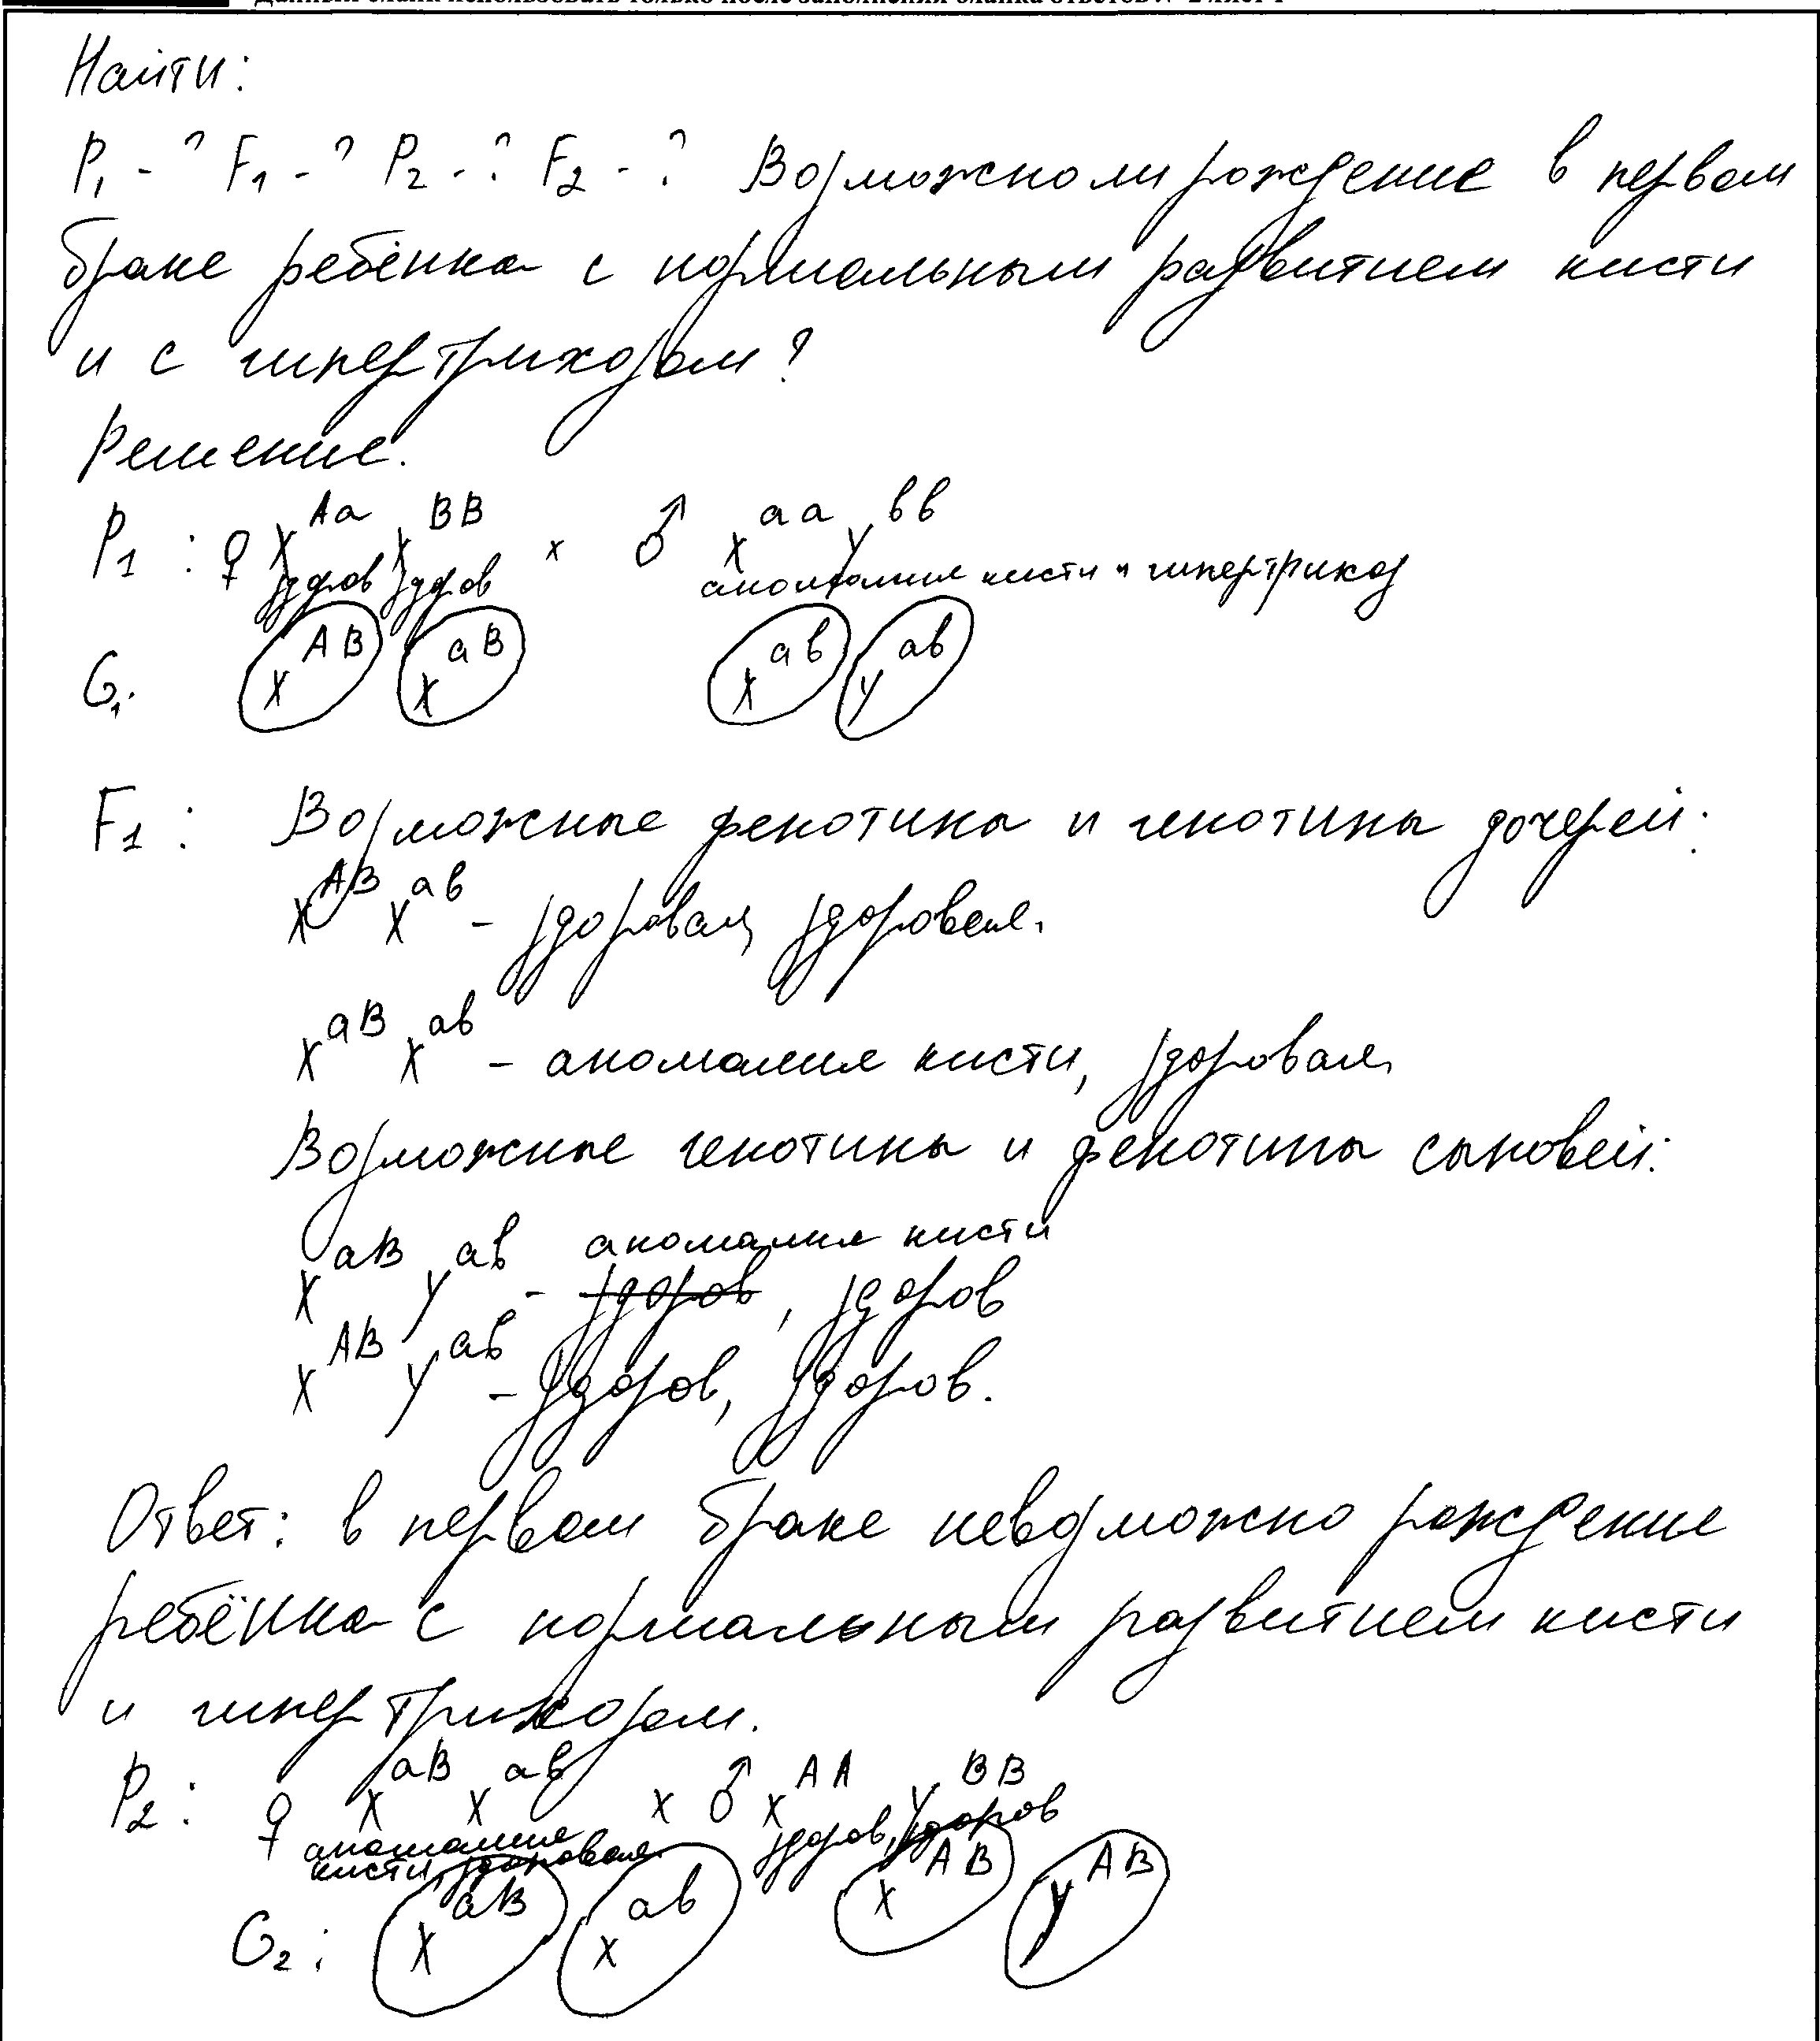 Данный бланк использовать только после заполнения бланка ответов № 2 лист 1
Найти:
P₁ - ? F₁ - ? P₂ - ? F₂ - ? Возможно ли рождение в первом
браке ребёнка с нормальным развитием кисти
и с гипертрихозом?
Решение.
P1 : ♀ X^Aa X^BB × ♂ X^aa Y^вв
здоров здоров аномалия кисти и гипертрихоз
G₁: X^AB X^aB X^aв Y^aв
F1 : Возможные фенотипы и генотипы дочерей:
X^AB X^aв - здоровая, здоровая.
X^aB X^aв - аномалия кисти, здоровая.
Возможные генотипы и фенотипы сыновей:
X^aB Y^aв - здоров аномалия кисти, здоров
X^AB Y^aв - здоров, здоров.
Ответ: в первом браке невозможно рождение
ребёнка с нормальным развитием кисти
и гипертрихозом.
P₂ : ♀ X^aB X^aв × ♂ X^AA Y^BB
аномалия кисти, здоровая здоров, здоров
G₂ : X^aB X^aв X^AB Y^AB